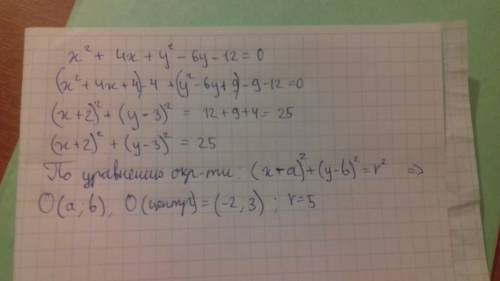 x² + 4x + y² - 6y - 12 = 0
(x² + 4x + 4) - 4 + (y² - 6y + 9) - 9 - 12 = 0
(x + 2)² + (y - 3)² = 12 + 9 + 4 = 25
(x + 2)² + (y - 3)² = 25
По уравнению окр-ти: (x - a)² + (y - b)² = r² ⇒
O(a, b), O(центр) = (-2, 3); r = 5